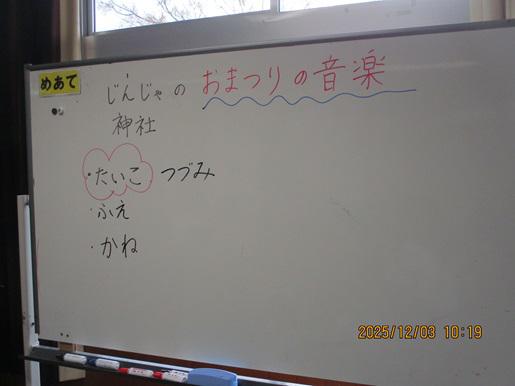 めあて
じんじゃの おまつりの音楽
神社
・たいこ つづみ
・ふえ
・かね
2025/12/03 10:19